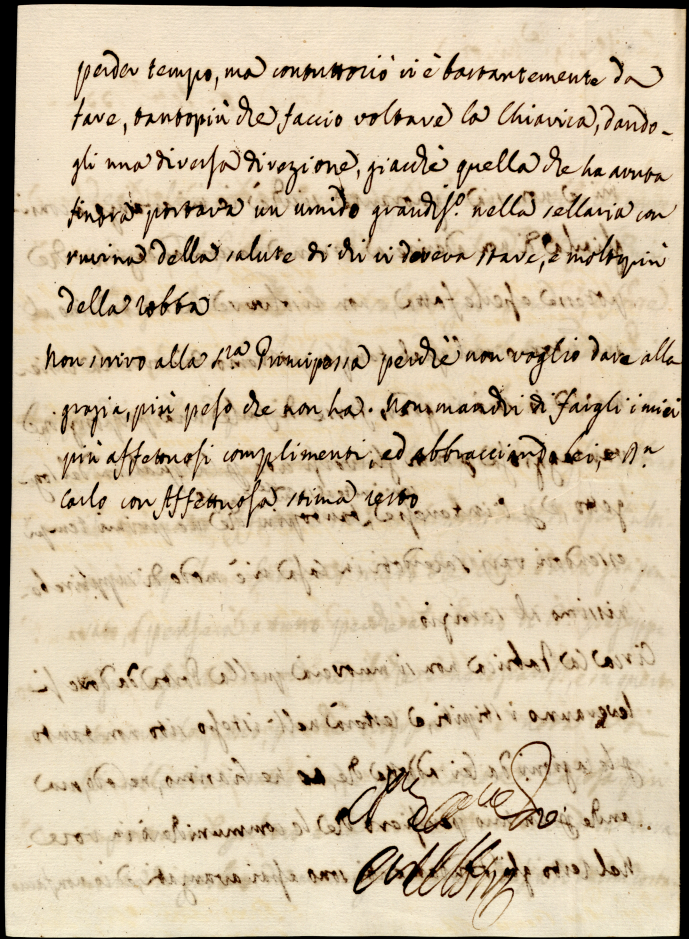 perder tempo, ma contuttociò vi è bastantemente da
fare, tantopiù che faccio voltare la Chiavica, dando-
gli una diversa direzione, giacchè quella che ha avuta
finora portava un umido grandiss.o nella sellaria con
ruvina della salute di chi vi doveva stare, e moltopiù
della robba
Non scrivo alla S.ra Principessa perchè non voglio dare alla
grazia, più peso che non ha. Non manchi di fargli i miei
più affettuosi complimenti, ed abbracciando lei, e D.n
Carlo con affettuosa stima resto